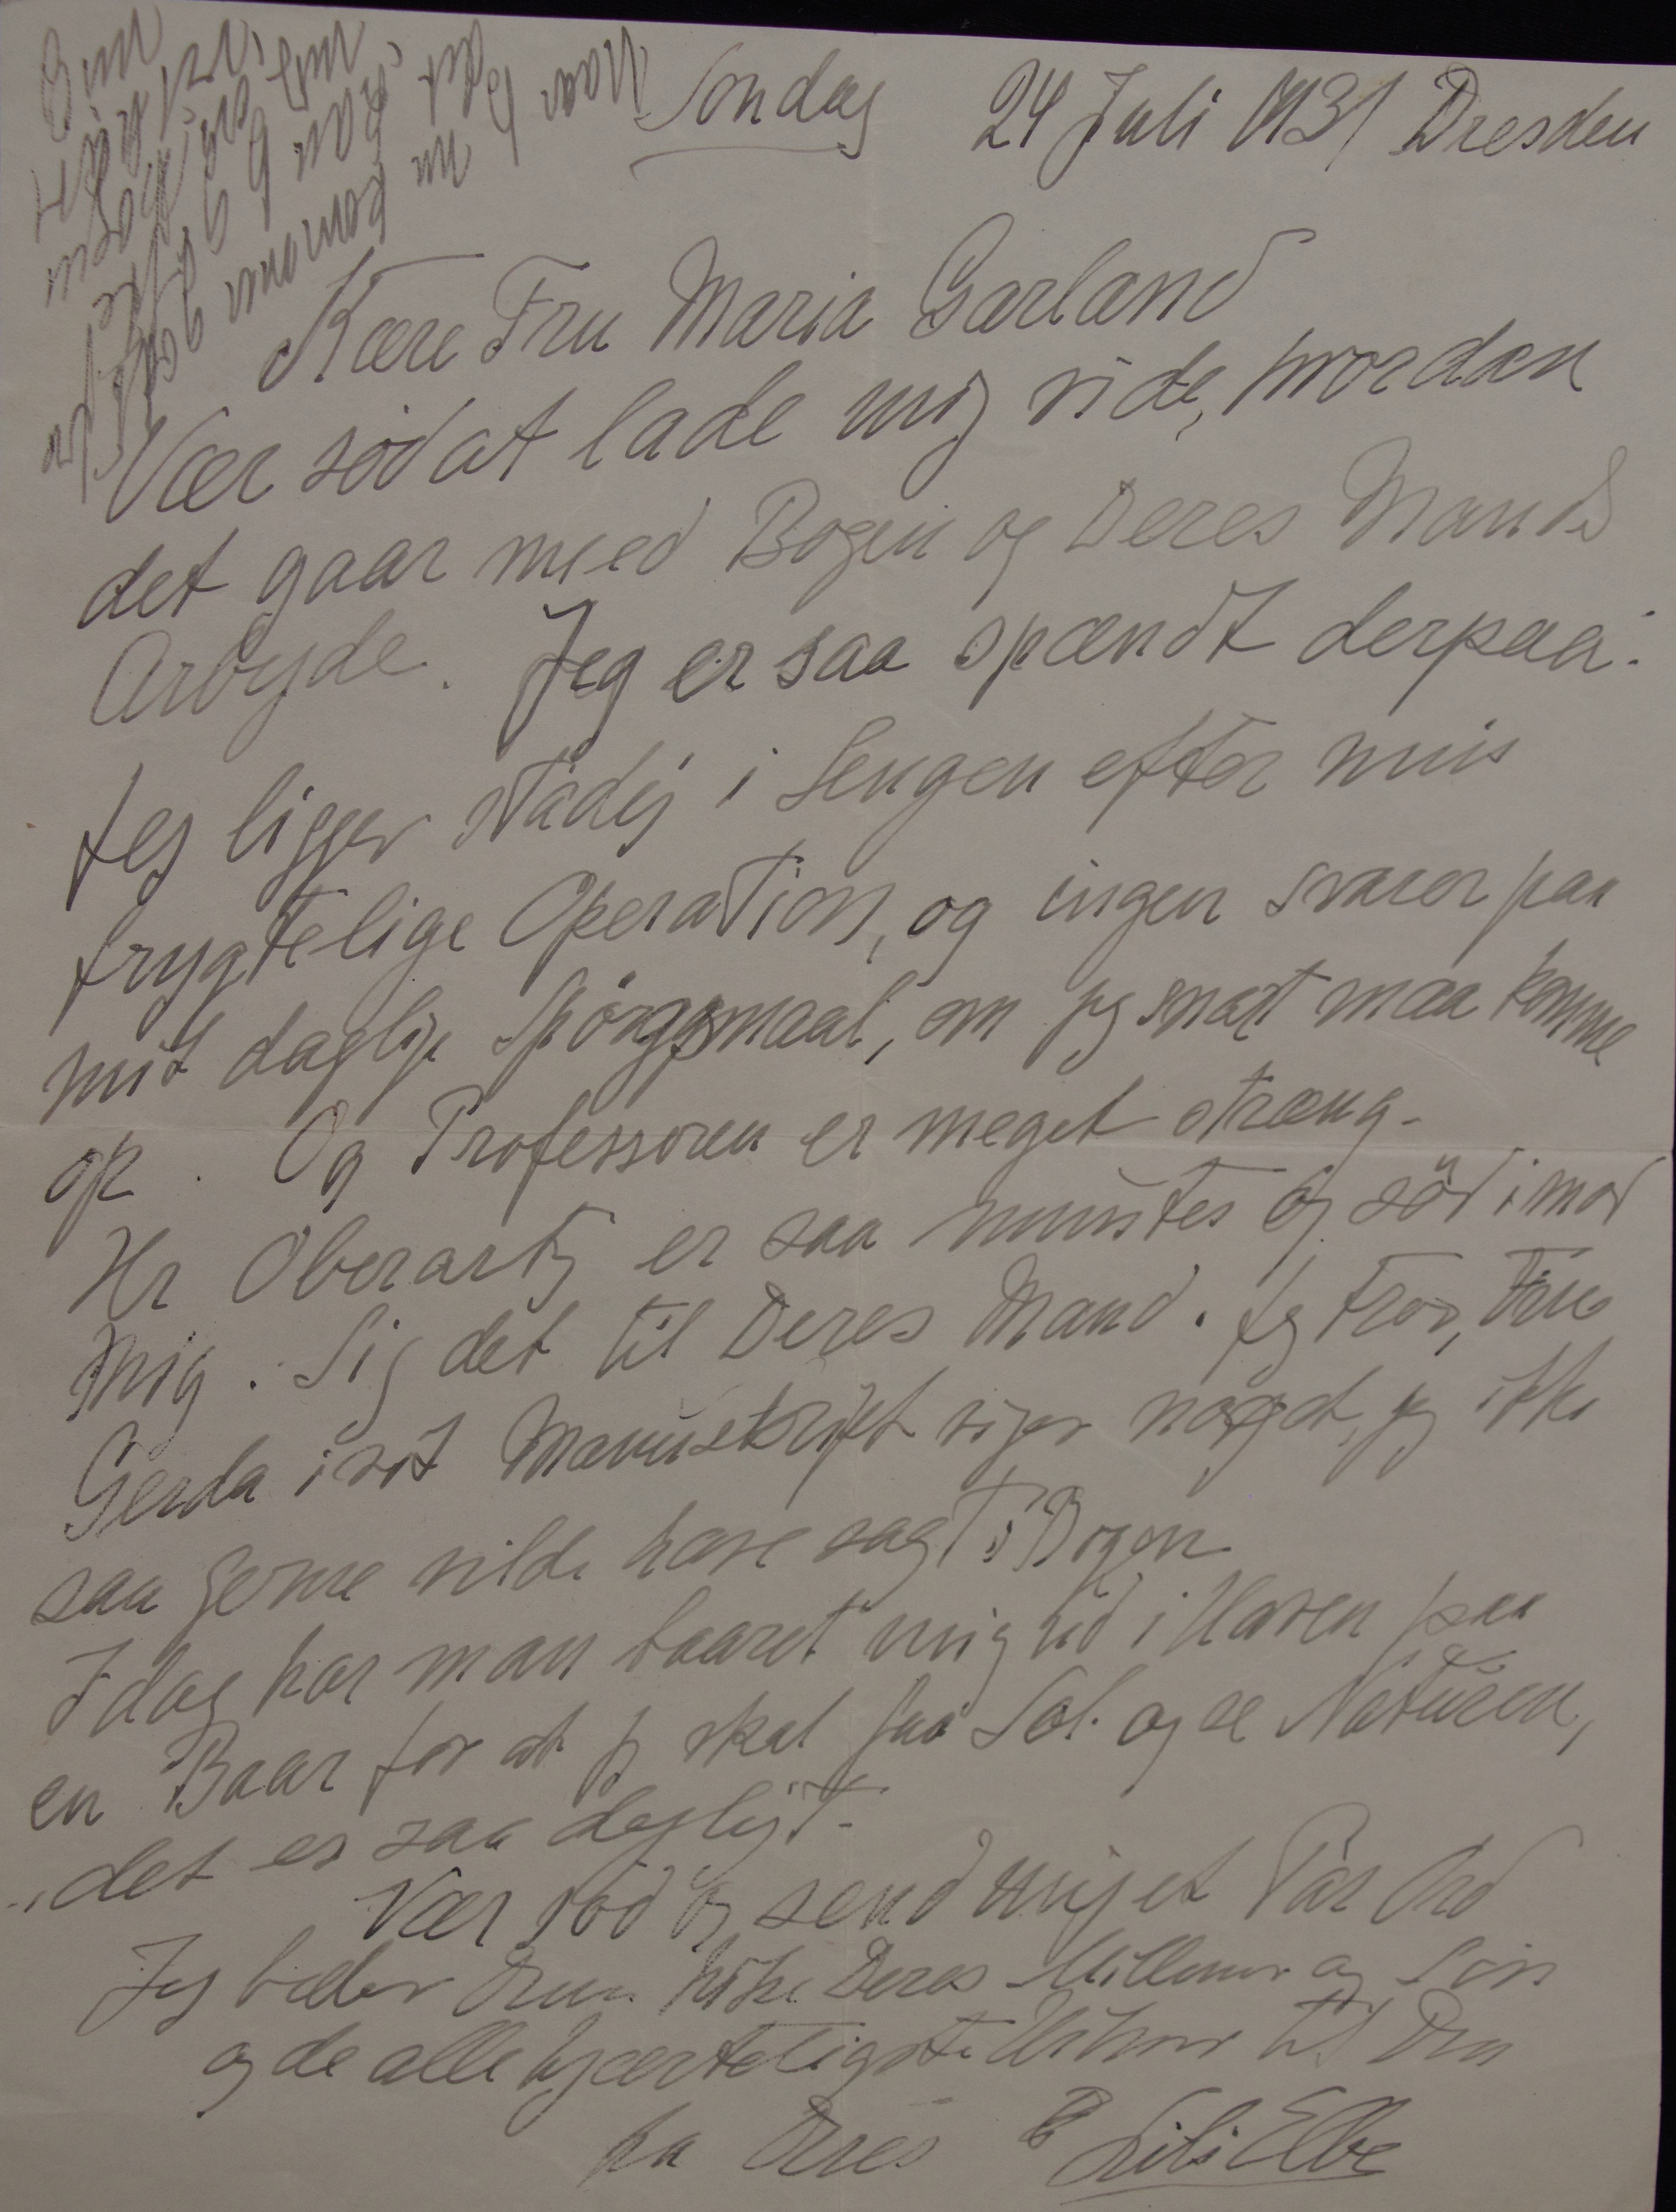 Søndag 24 Juli 1931 Dresden
Kære Fru Maria Garland
Vær sød at lade mig vide, hvordan
det gaar med Bogen og Deres Mands
Arbejde. Jeg er saa spændt derpaa.
Jeg ligger stadig i Sengen efter min
frygtelige Operation, og ingen svarer paa
mit daglige Spörgsmaal, om jeg snart maa komme
op. Og Professoren er meget stræng.
Hr Oberarts er saa og söd imod
mig. Sig det til Deres Mand. Jeg tror, Fru
Gerda i sit Manuskript siger noget, jeg ikke
saa gerne vilde have sagt i Bogen
I dag har man baaret mig ud i Haven paa
en Baar for at jeg skal faa Sol og se Naturen,
det er saa dejligt.
Vær sød og send mig et Par Ord
Jeg beder Dem hilse Deres og Sön
og de alle hjærteligste til Dem
fra Deres Lili Elbe
Naar